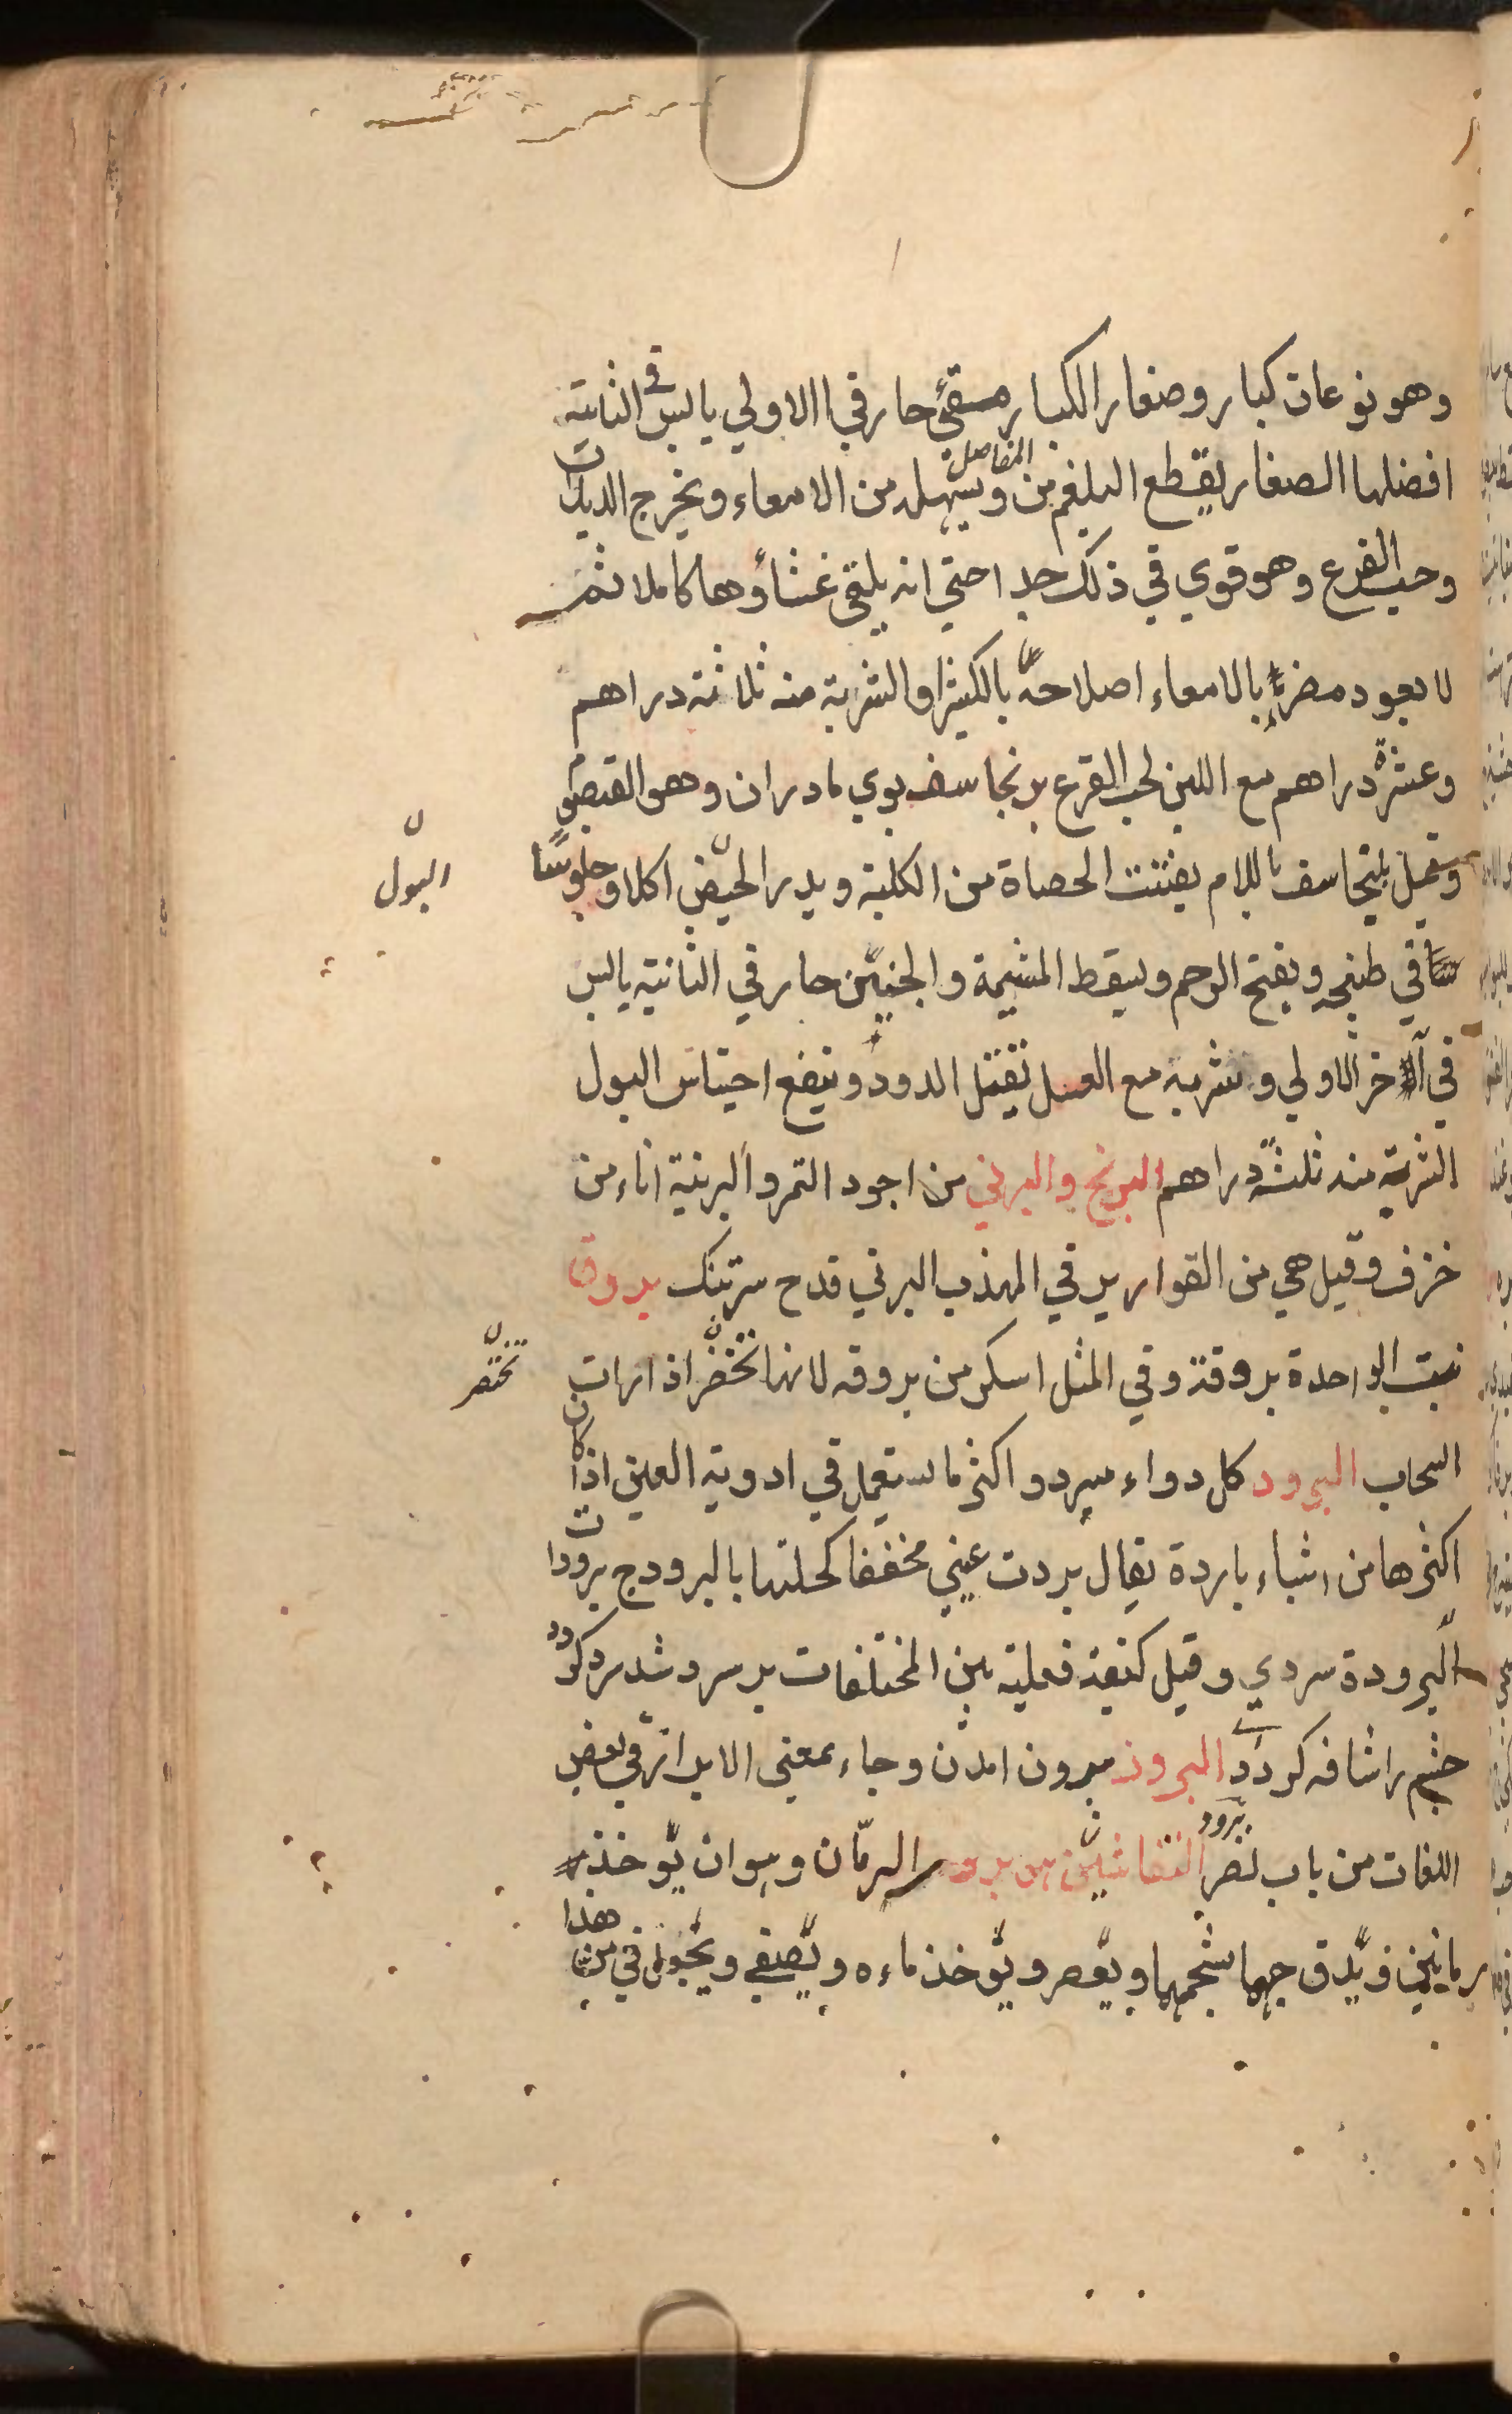 وهو نوعان كبار وصغار الكبار مقئ حار في الاولي يابس في الثانية
افضلها الصغار يقطع البلغم من المفاصل ويسهله من الامعاء ويخرج الديدان
وحب القرع وهو قوي في ذلك جدا حتي انه يلقي غشاؤها كاملا ثم
لا يعود مضر بالامعاء اصلاحه بالكثيرا والشربة منه ثلاثة دراهم
وعشرة دراهم مع اللبن لحب القرع برنجاسف بوي مادران وهو القيصوم
وقيل بلنجاسف باللام يفتت الحصاة من الكلية ويدر الحيض اكلا وجلوسا
البول
في طبخه ويفتح الرحم ويسقط المشيمة والجنين حار في الثانية يابس
في آخر الاولي وشربه مع العسل يقتل الدود وينفع احتباس البول
الشربة منه ثلثة دراهم البرنج والبرني من اجود التمر والبرنية اناء من
خزف وقيل هي من القوارير في المهذب البرني قدح بروق
نبت الواحدة بروقة وفي المثل اسكر من بروقه لانها تخضر اذا رات
تخضر
السحاب البرود كل دواء يبرد و اكثر ما يستعمل في ادوية العين اذا كان
اكثرها من اشياء باردة يقال بردت عيني مخففا كحلتها بالبرود ج برودات
البرودة سردي وقيل كيفية فعلية بين المختلفات برسرد شد سرد كرد
چشم را شافه كرد البروز بيرون امدن وجاء بمعني الابراز في بعض
اللغات من باب نصر برود النقاشين هو برود الرمان وهو ان يؤخذ
رمانين فيدق جها شحمهما ويعصر ويؤخذ ماءه ويصفي ويجعل في من هذا